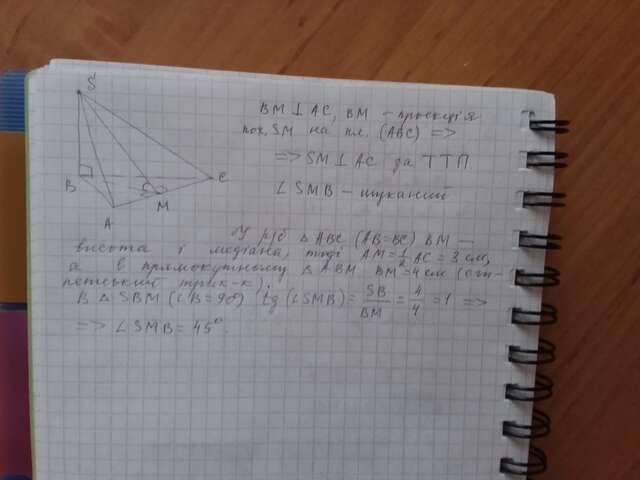 S
B
C
A
M
BM ⊥ AC, BM - проєкція
пох. SM на пл. (ABC) =>
=> SM ⊥ AC за ТТП
∠ SMB - шуканий
У р/б △ ABC (AB=BC) BM —
висота і медіана, тоді AM = 1/2 AC = 3 см,
а в прямокутному △ ABM BM = 4 см (єгипетський трик-к).
В △ SBM (∠B = 90°) tg (∠SMB) = SB/BM = 4/4 = 1 =>
=> ∠ SMB = 45°.